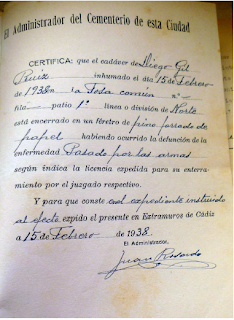 El Administrador del Cementerio de esta Ciudad
CERTIFICA: que el cadáver de Diego Gil
Ruiz inhumado el día 15 de Febrero
de 1938 en la Fosa común n.º -
fila - patio 1º línea o división de Norte
está encerrado en un féretro de pino forrado de
papel habiendo ocurrido la defunción de la
enfermedad Pasado por las armas
según indica la licencia expedida para su enterra-
miento por el juzgado respectivo.
Y para que conste en el expediente instruido
al efecto expido el presente en Extramuros de Cádiz
a 15 de Febrero de 1938.
El Administrador,
Juan